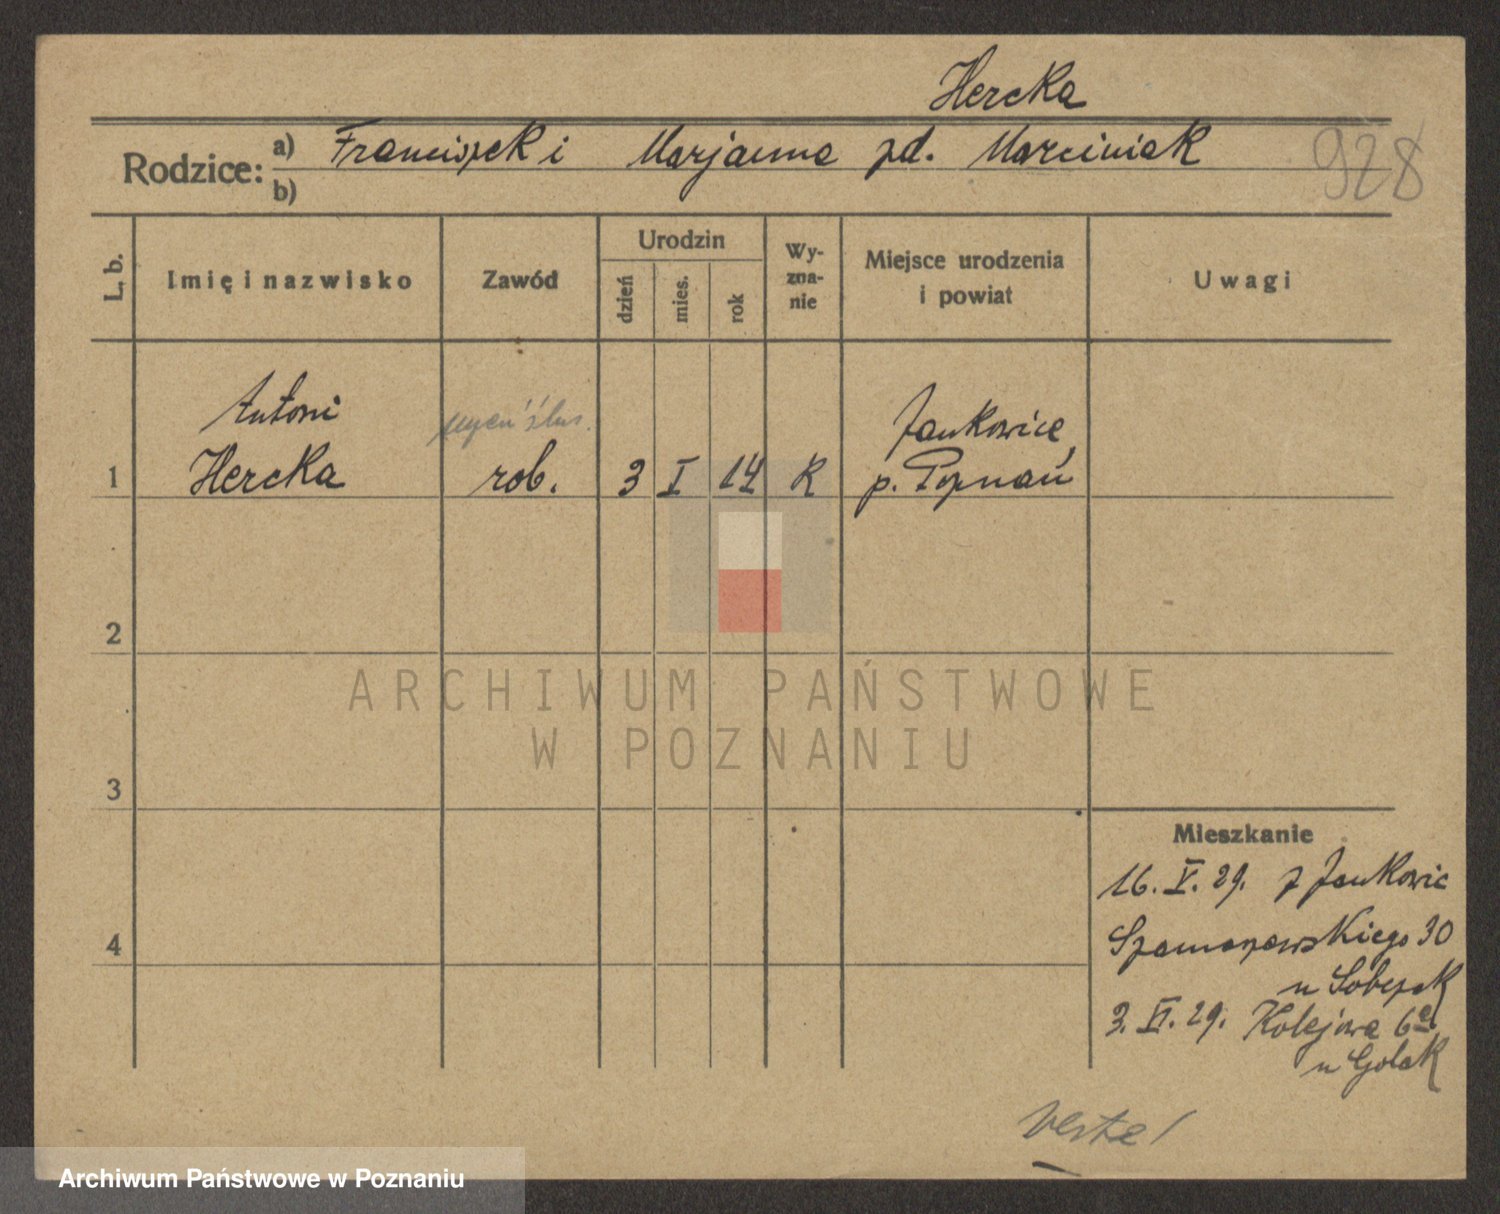 Hercka
Rodzice: a) Franciszek i Marjanna zd. Marciniak
928
b)
L. b. Imię i nazwisko Zawód Urodzin dzień mies. rok Wy-zna-nie Miejsce urodzenia i powiat Uwagi
Antoni uczeń ślus. Jankowice
1 Hercka rob. 3 I 14 K p. Poznań
2
ARCHIWUM PAŃSTWOWE
W POZNANIU
3
Mieszkanie
16. V. 29. z Jankowic
4 Szamarzewskiego 30
u Sobczak
3. VI. 29. Kolejowa 6
u Golak
verte!
Archiwum Państwowe w Poznaniu